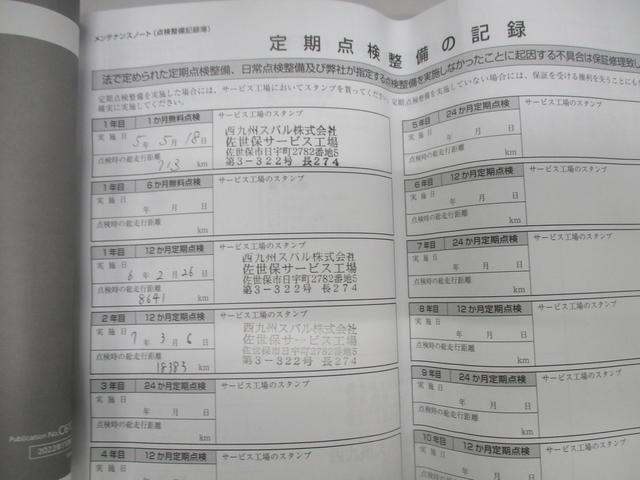 メンテナンスノート(点検整備記録簿)
定期点検整備の記録
法で定められた定期点検整備、日常点検整備及び弊社が指定する点検整備を実施しなかったことに起因する不具合は保証修理致し
定期点検整備を実施した場合には、サービス工場においてスタンプを貰ってください。定期点検整備を実施していない場合には、保証を受ける権利を失うことにも
確実に実施してください。
1年目 1か月無料点検 サービス工場のスタンプ
実施日
5年 5月 18日
点検時の総走行距離
713 km
西九州スバル株式会社
佐世保サービス工場
佐世保市日宇町2782番地5
第3-322号 長274
1年目 6か月無料点検 サービス工場のスタンプ
実施日
年 月 日
点検時の総走行距離
km
1年目 12か月定期点検 サービス工場のスタンプ
実施日
6年 2月 26日
点検時の総走行距離
8641 km
西九州スバル株式会社
佐世保サービス工場
佐世保市日宇町2782番地5
第3-322号 長274
2年目 12か月定期点検 サービス工場のスタンプ
実施日
7年 3月 6日
点検時の総走行距離
18383 km
西九州スバル株式会社
佐世保サービス工場
佐世保市日宇町2782番地5
第3-322号 長274
3年目 24か月定期点検 サービス工場のスタンプ
実施日
年 月 日
点検時の総走行距離
km
4年目 12か月定期点検 サービス工場のスタンプ
実施日
5年目 24か月定期点検 サービス工場のスタンプ
実施日
年 月 日
点検時の総走行距離
km
6年目 12か月定期点検 サービス工場のスタンプ
実施日
年 月 日
点検時の総走行距離
km
7年目 24か月定期点検 サービス工場のスタンプ
実施日
年 月 日
点検時の総走行距離
km
8年目 12か月定期点検 サービス工場のスタンプ
実施日
年 月 日
点検時の総走行距離
km
9年目 24か月定期点検 サービス工場のスタンプ
実施日
年 月 日
点検時の総走行距離
km
10年目 12か月定期点検 サービス工場のスタンプ
実施日
年 月 日
Publication No.
2022年